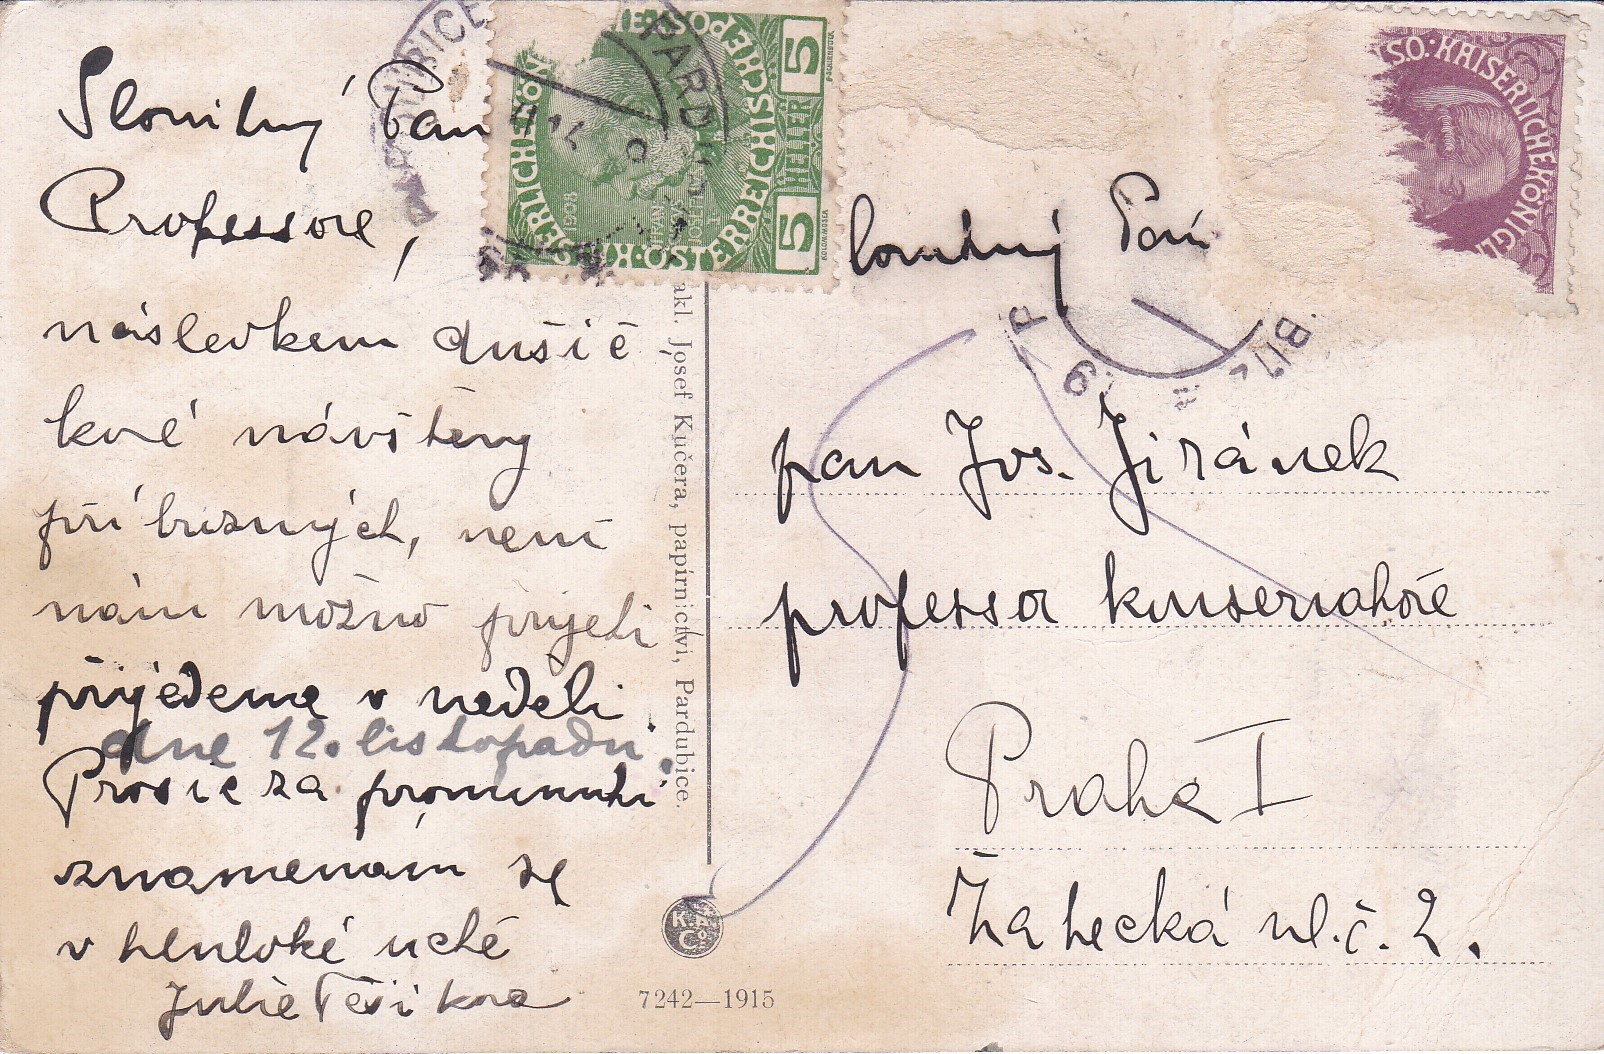 Slovutný Pan
Professore,
následkem dušič
kové návštěvy
příbuzných, není
nám možno přijeti
přijedeme v neděli
dne 12. listopadu.
Prosíc za prominutí
znamenám se
v hluboké úctě
Julie Tesikova
akl. Josef Kučera, papírnictví, Pardubice.
7242—1915
K. A. Co.
PARDUBICE
PARD
5 HELLER 5
KAISERLICHE KÖNIGL
ÖSTERREICHISCHE POST
1908
lovutný Pán
pan Jos. Jiránek
professor konservatoře
Praha I
Žatecká ul. č. 2.